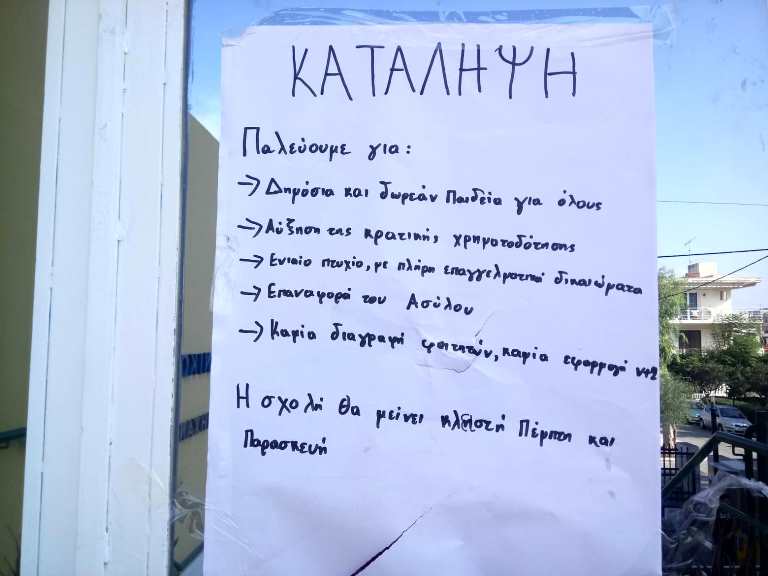 ΚΑΤΑΛΗΨΗ
Παλεύουμε για:
→ Δημόσια και δωρεάν Παιδεία για όλους
→ Αύξηση της κρατικής χρηματοδότησης
→ Ενιαίο πτυχίο, με πλήρη επαγγελματικά δικαιώματα
→ Επαναφορά του Ασύλου
→ Καμία διαγραφή φοιτητών, καμία εφαρμογή ν+2
Η σχολή θα μείνει κλειστή Πέμπτη και
Παρασκευή